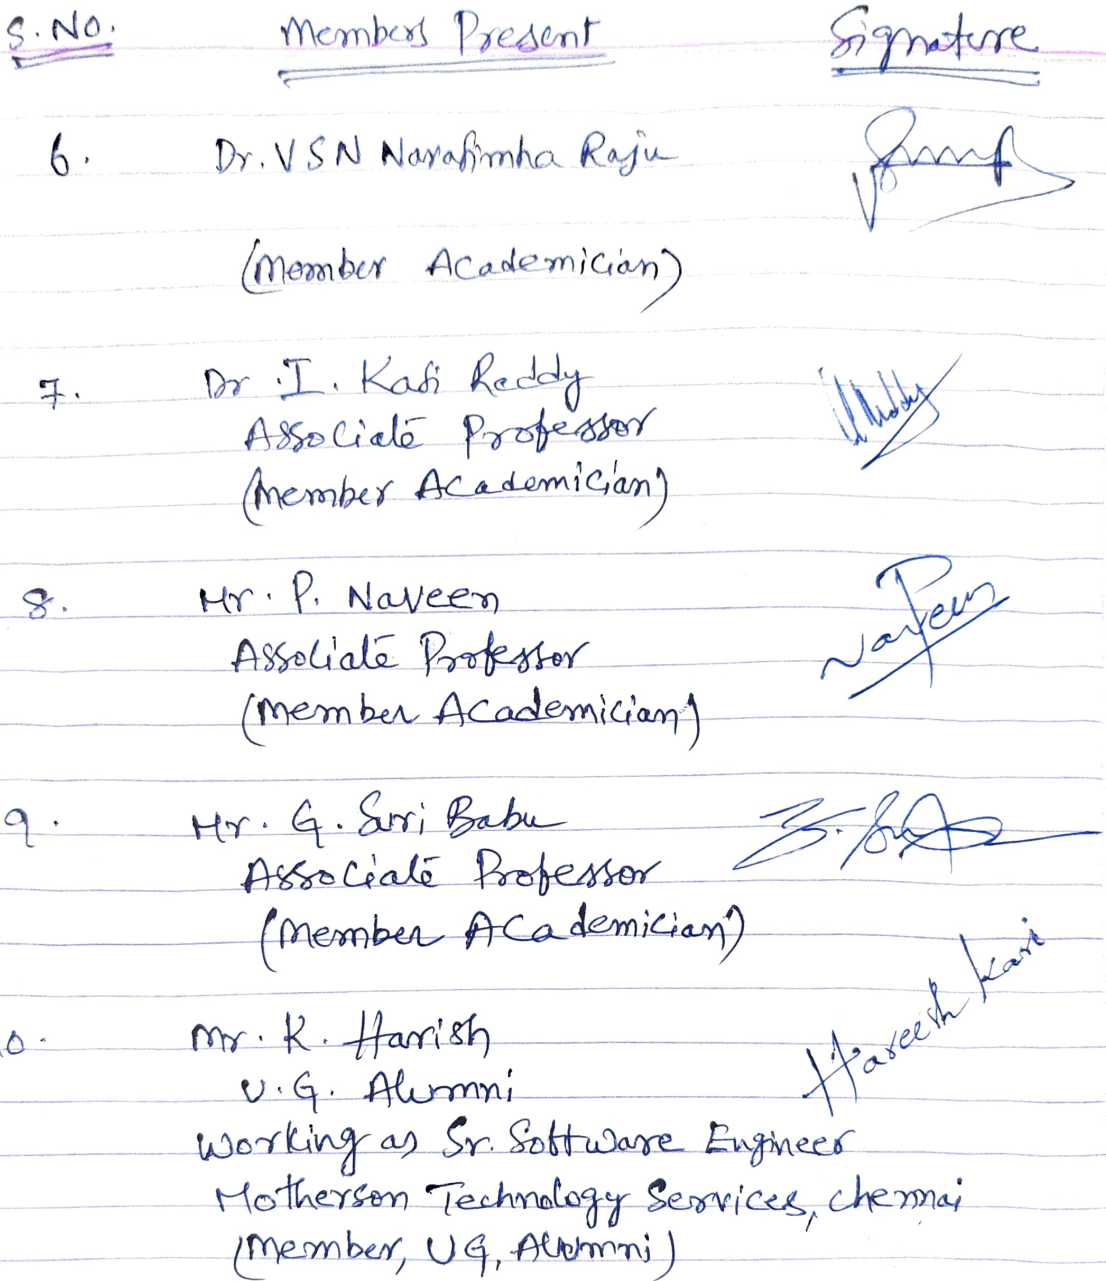 S. No. Members Present Signature
6. Dr. V S N Narasimha Raju
(Member Academician)
7. Dr. I. Kasi Reddy
Associate Professor
(Member Academician)
8. Mr. P. Naveen
Associate Professor
(Member Academician)
Naveen
9. Mr. G. Suri Babu
Associate Professor
(Member Academician)
0. Mr. K. Harish
Hareesh Kari
U.G. Alumni
Working as Sr. Software Engineer
Motherson Technology Services, Chennai
(Member, UG, Alumni)